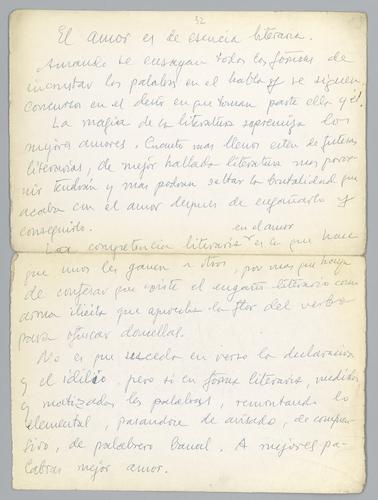 52
El amor es de esencia literaria.
Amando se ensayan todas las formas de
incrustar las palabras en el habla y se siguen
concursos en el decir en que toman parte ella y él.
La magia de la literatura supremiza los
mejores amores. Cuanto mas llenos esten de futesas
literarias, de mejor hallada literatura mas porve-
nir tendrán y mas podrán saltar la brutalidad que
acaba con el amor despues de engañarlo y
conseguirlo.
en el amor
La competencia literaria es la que hace
que unos les ganen a otros, por mas que haya
de confesar que existe el engaño literario como
arma ilícita que aprovecha la flor del verbo
para ofuscar doncellas.
No es que suceda en verso la declaración
y el idilio, pero si en forma literaria, medidas
y matizadas las palabras, remontando lo
elemental, pasandose de avisado, de compa-
sivo, de palabrero banal. A mejores pa-
labras mejor amor.